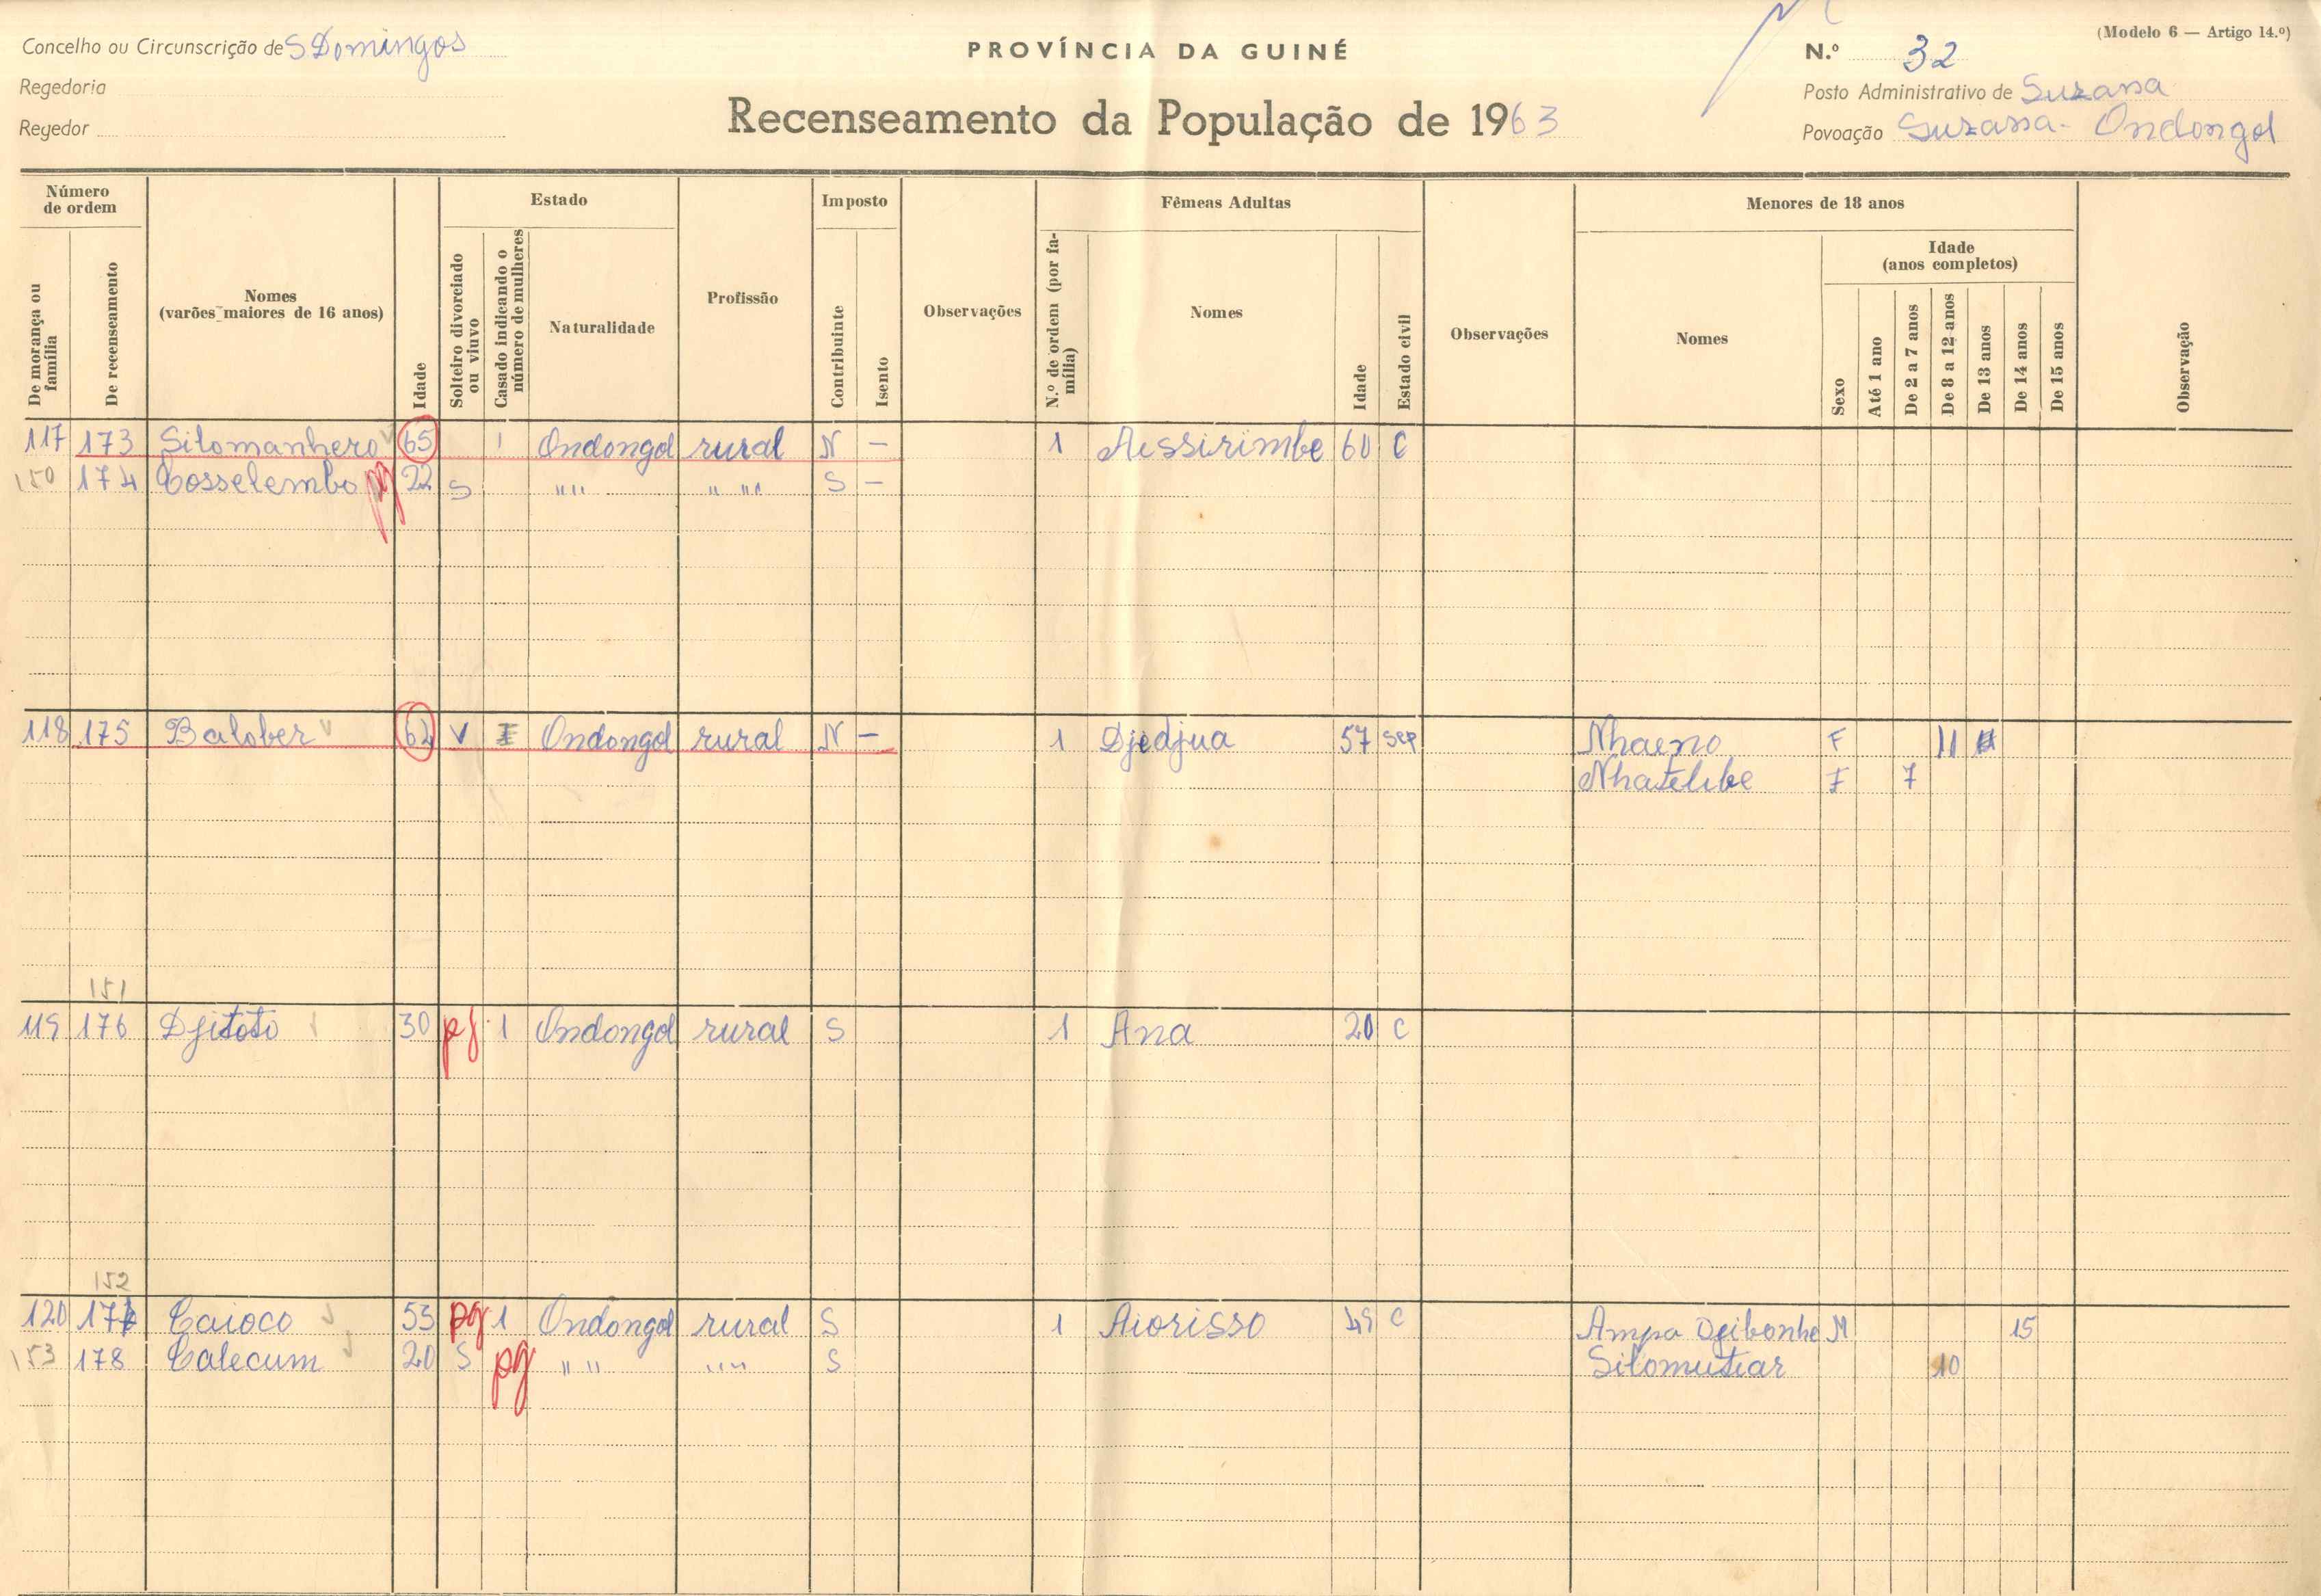 (Modelo 6 — Artigo 14.º)
Concelho ou Circunscrição de S Domingos
PROVÍNCIA DA GUINÉ
N.º 32
Regedoria
Posto Administrativo de Suzana
Regedor
Recenseamento da População de 1963
Povoação Suzana - Ondongol
Número de ordem
Estado
Imposto
Fêmeas Adultas
Menores de 18 anos
De morança ou família
De recenseamento
Nomes (varões maiores de 16 anos)
Idade
Solteiro divorciado ou viuvo
Casado indicando o número de mulheres
Naturalidade
Profissão
Contribuinte
Isento
Observações
N.º de ordem (por família)
Nomes
Idade
Estado civil
Observações
Nomes
Sexo
Idade (anos completos)
Até 1 ano
De 2 a 7 anos
De 8 a 12 anos
De 13 anos
De 14 anos
De 15 anos
Observação
117 173 Silomanhero 65 1 Ondongol rural N — 1 Aessirimbe 60 C
150 174 Cosselembo pg 22 S " " " " S —
118 175 Balober 62 V Ondongol rural N — 1 Djedjua 57 sep Nhaeno F 11
Nhatelibe F 7
151
119 176 Djitoti 30 pg 1 Ondongol rural S 1 Ana 20 C
152
120 177 Caioco 53 pg 1 Ondongol rural S 1 Aiorisso 49 C Ampa Djibonhe M 15
153 178 Calecum 20 S pg " " " " S Silomutiar 10